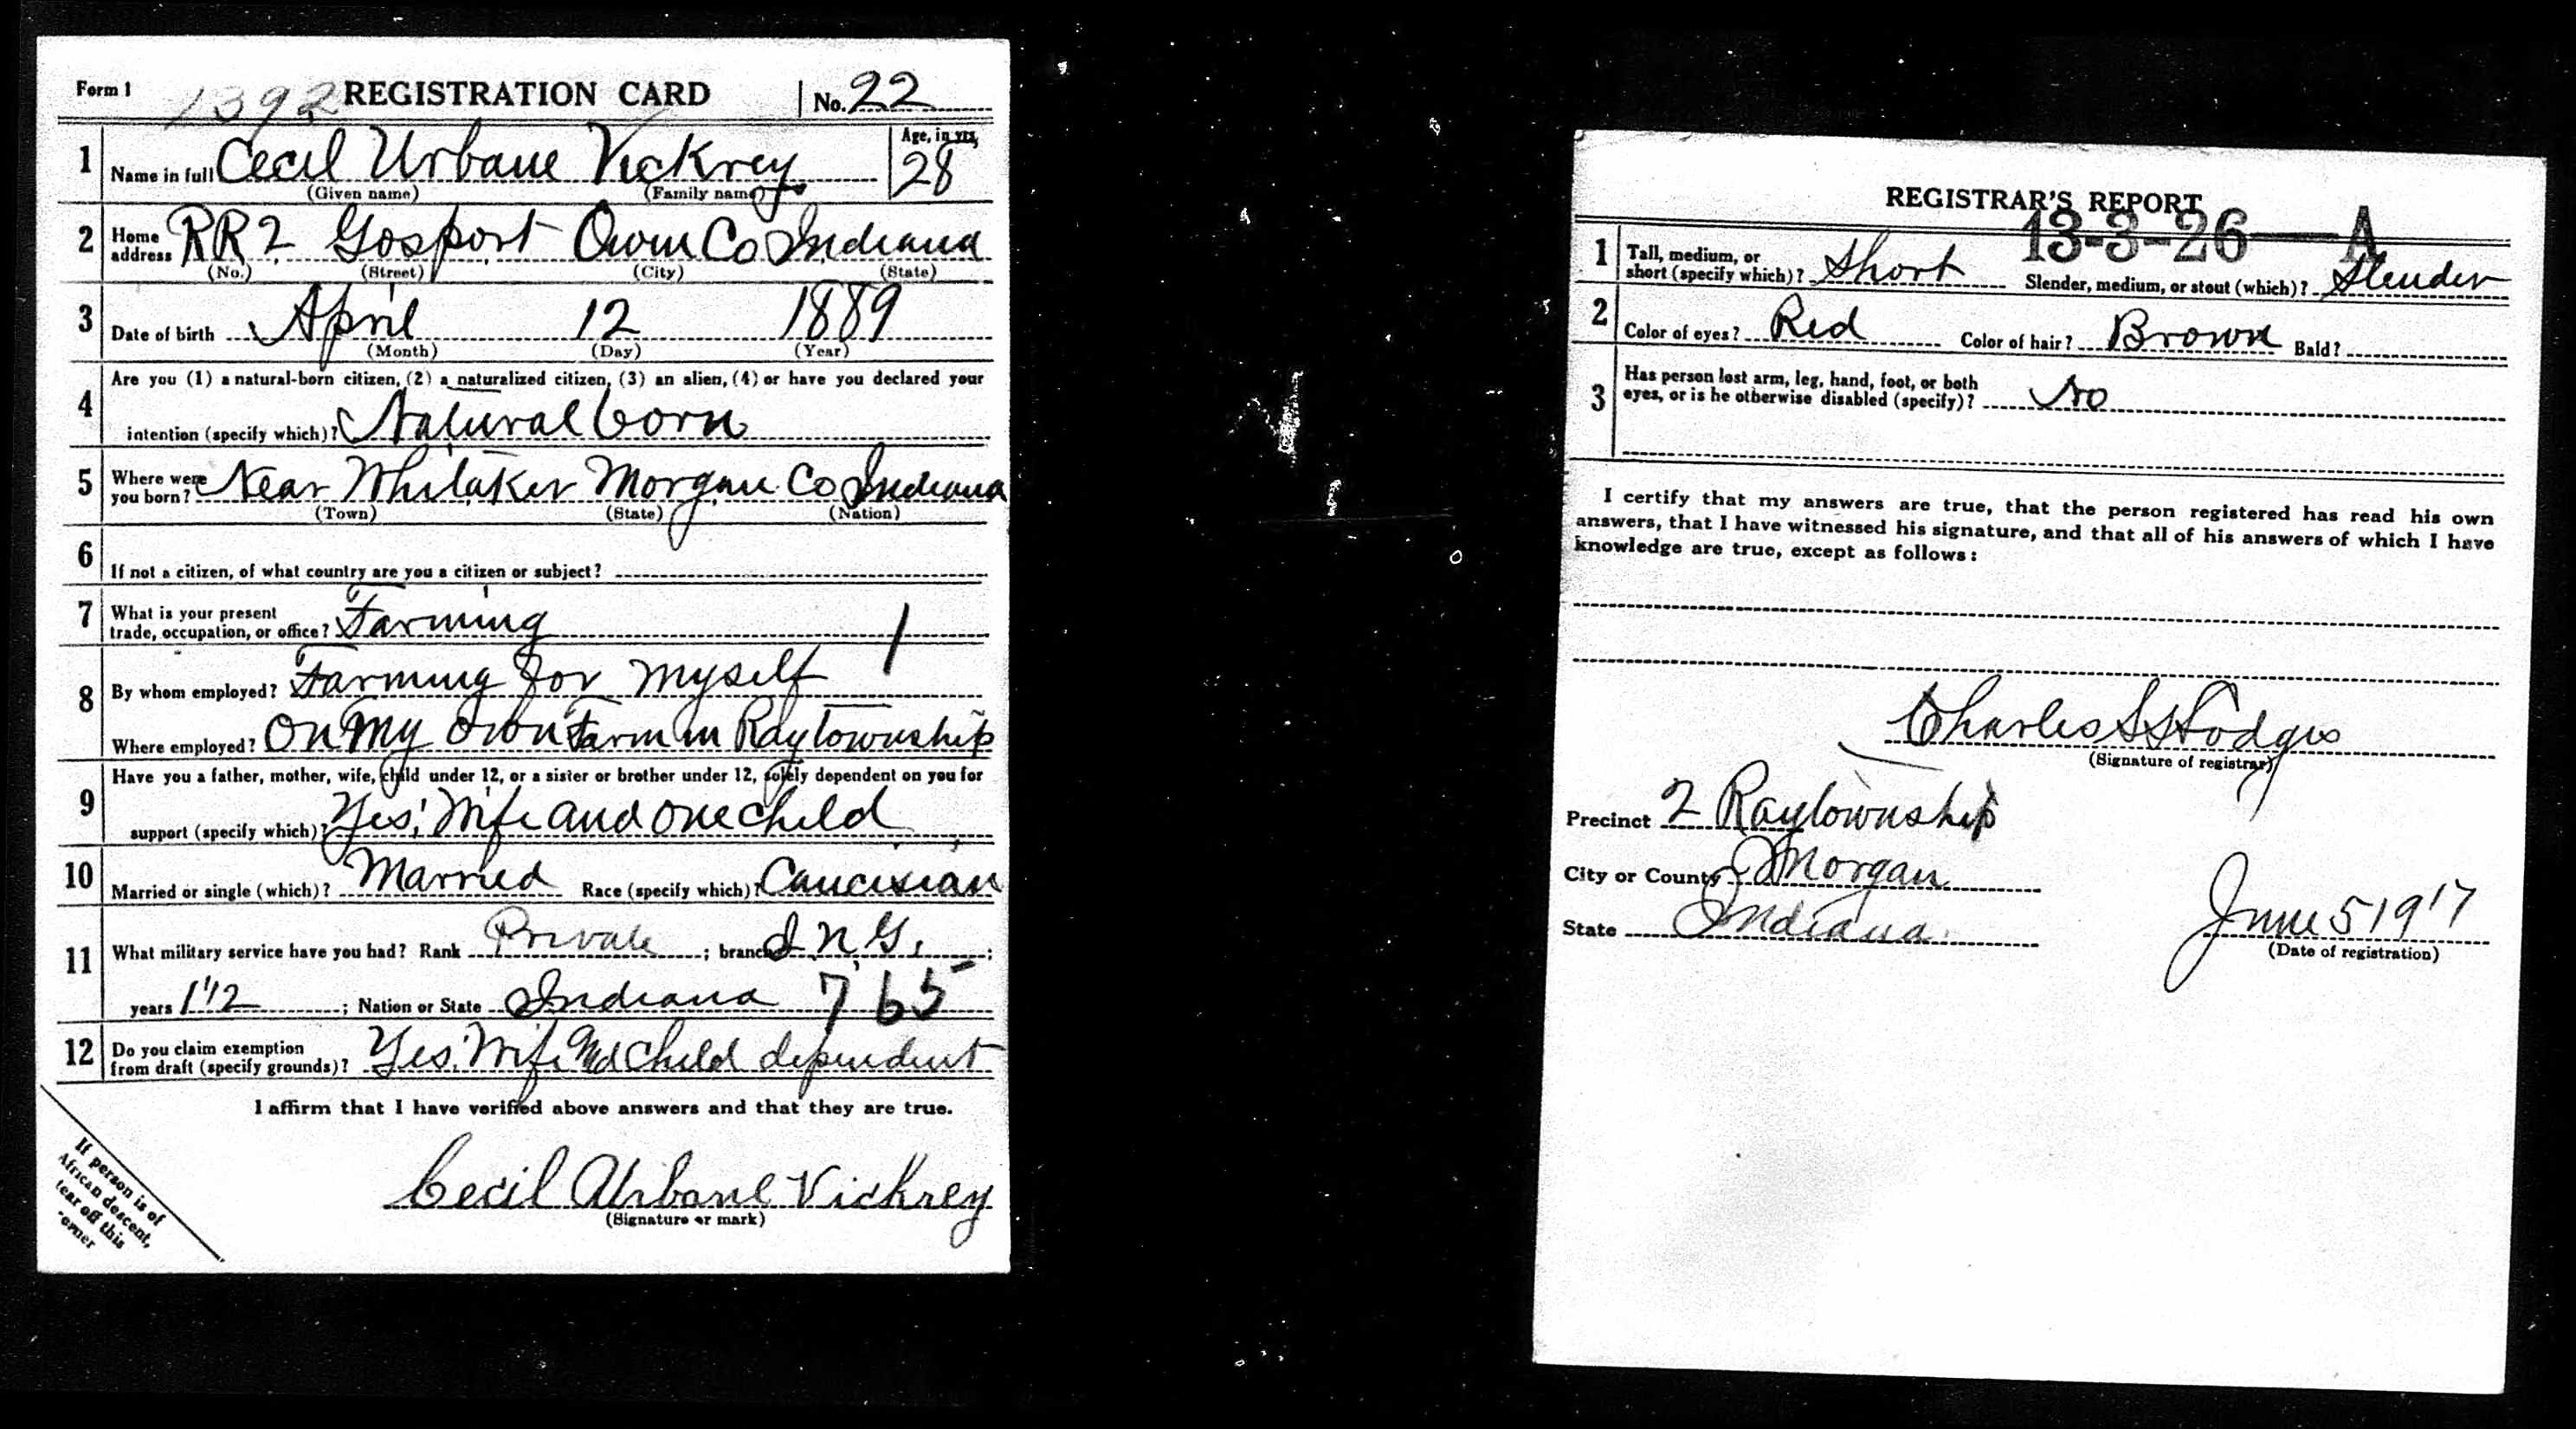 Form 1 1392 REGISTRATION CARD No. 22
1 Name in full Cecil Urbane Vickrey Age, in yrs. 28
(Given name) (Family name)
2 Home address RR 2 Gosport Owen Co Indiana
(No.) (Street) (City) (State)
3 Date of birth April 12 1889
(Month) (Day) (Year)
4 Are you (1) a natural-born citizen, (2) a naturalized citizen, (3) an alien, (4) or have you declared your
intention (specify which)? Natural born
5 Where were you born? Near Whitaker Morgan Co Indiana
(Town) (State) (Nation)
6 If not a citizen, of what country are you a citizen or subject?
7 What is your present
trade, occupation, or office? Farming 1
8 By whom employed? Farming for myself
Where employed? On My own Farm in Ray Township
9 Have you a father, mother, wife, child under 12, or a sister or brother under 12, solely dependent on you for
support (specify which)? Yes, Wife and one child
10 Married or single (which)? Married Race (specify which)? Caucisian
11 What military service have you had? Rank Private ; branch I. N. G. ;
years 1 1/2 ; Nation or State Indiana 765
12 Do you claim exemption
from draft (specify grounds)? Yes. Wife and Child dependent
I affirm that I have verified above answers and that they are true.
Cecil Urbane Vickrey
(Signature or mark)
If person is of
African descent,
tear off this
corner
REGISTRAR'S REPORT
13-3-26-A
1 Tall, medium, or
short (specify which)? Short Slender, medium, or stout (which)? Slender
2 Color of eyes? Red Color of hair? Brown Bald?
3 Has person lost arm, leg, hand, foot, or both
eyes, or is he otherwise disabled (specify)? No
I certify that my answers are true, that the person registered has read his own
answers, that I have witnessed his signature, and that all of his answers of which I have
knowledge are true, except as follows:
Charles S Hodges
(Signature of registrar)
Precinct 2 Ray township
City or County Morgan
State Indiana June 5 1917
(Date of registration)